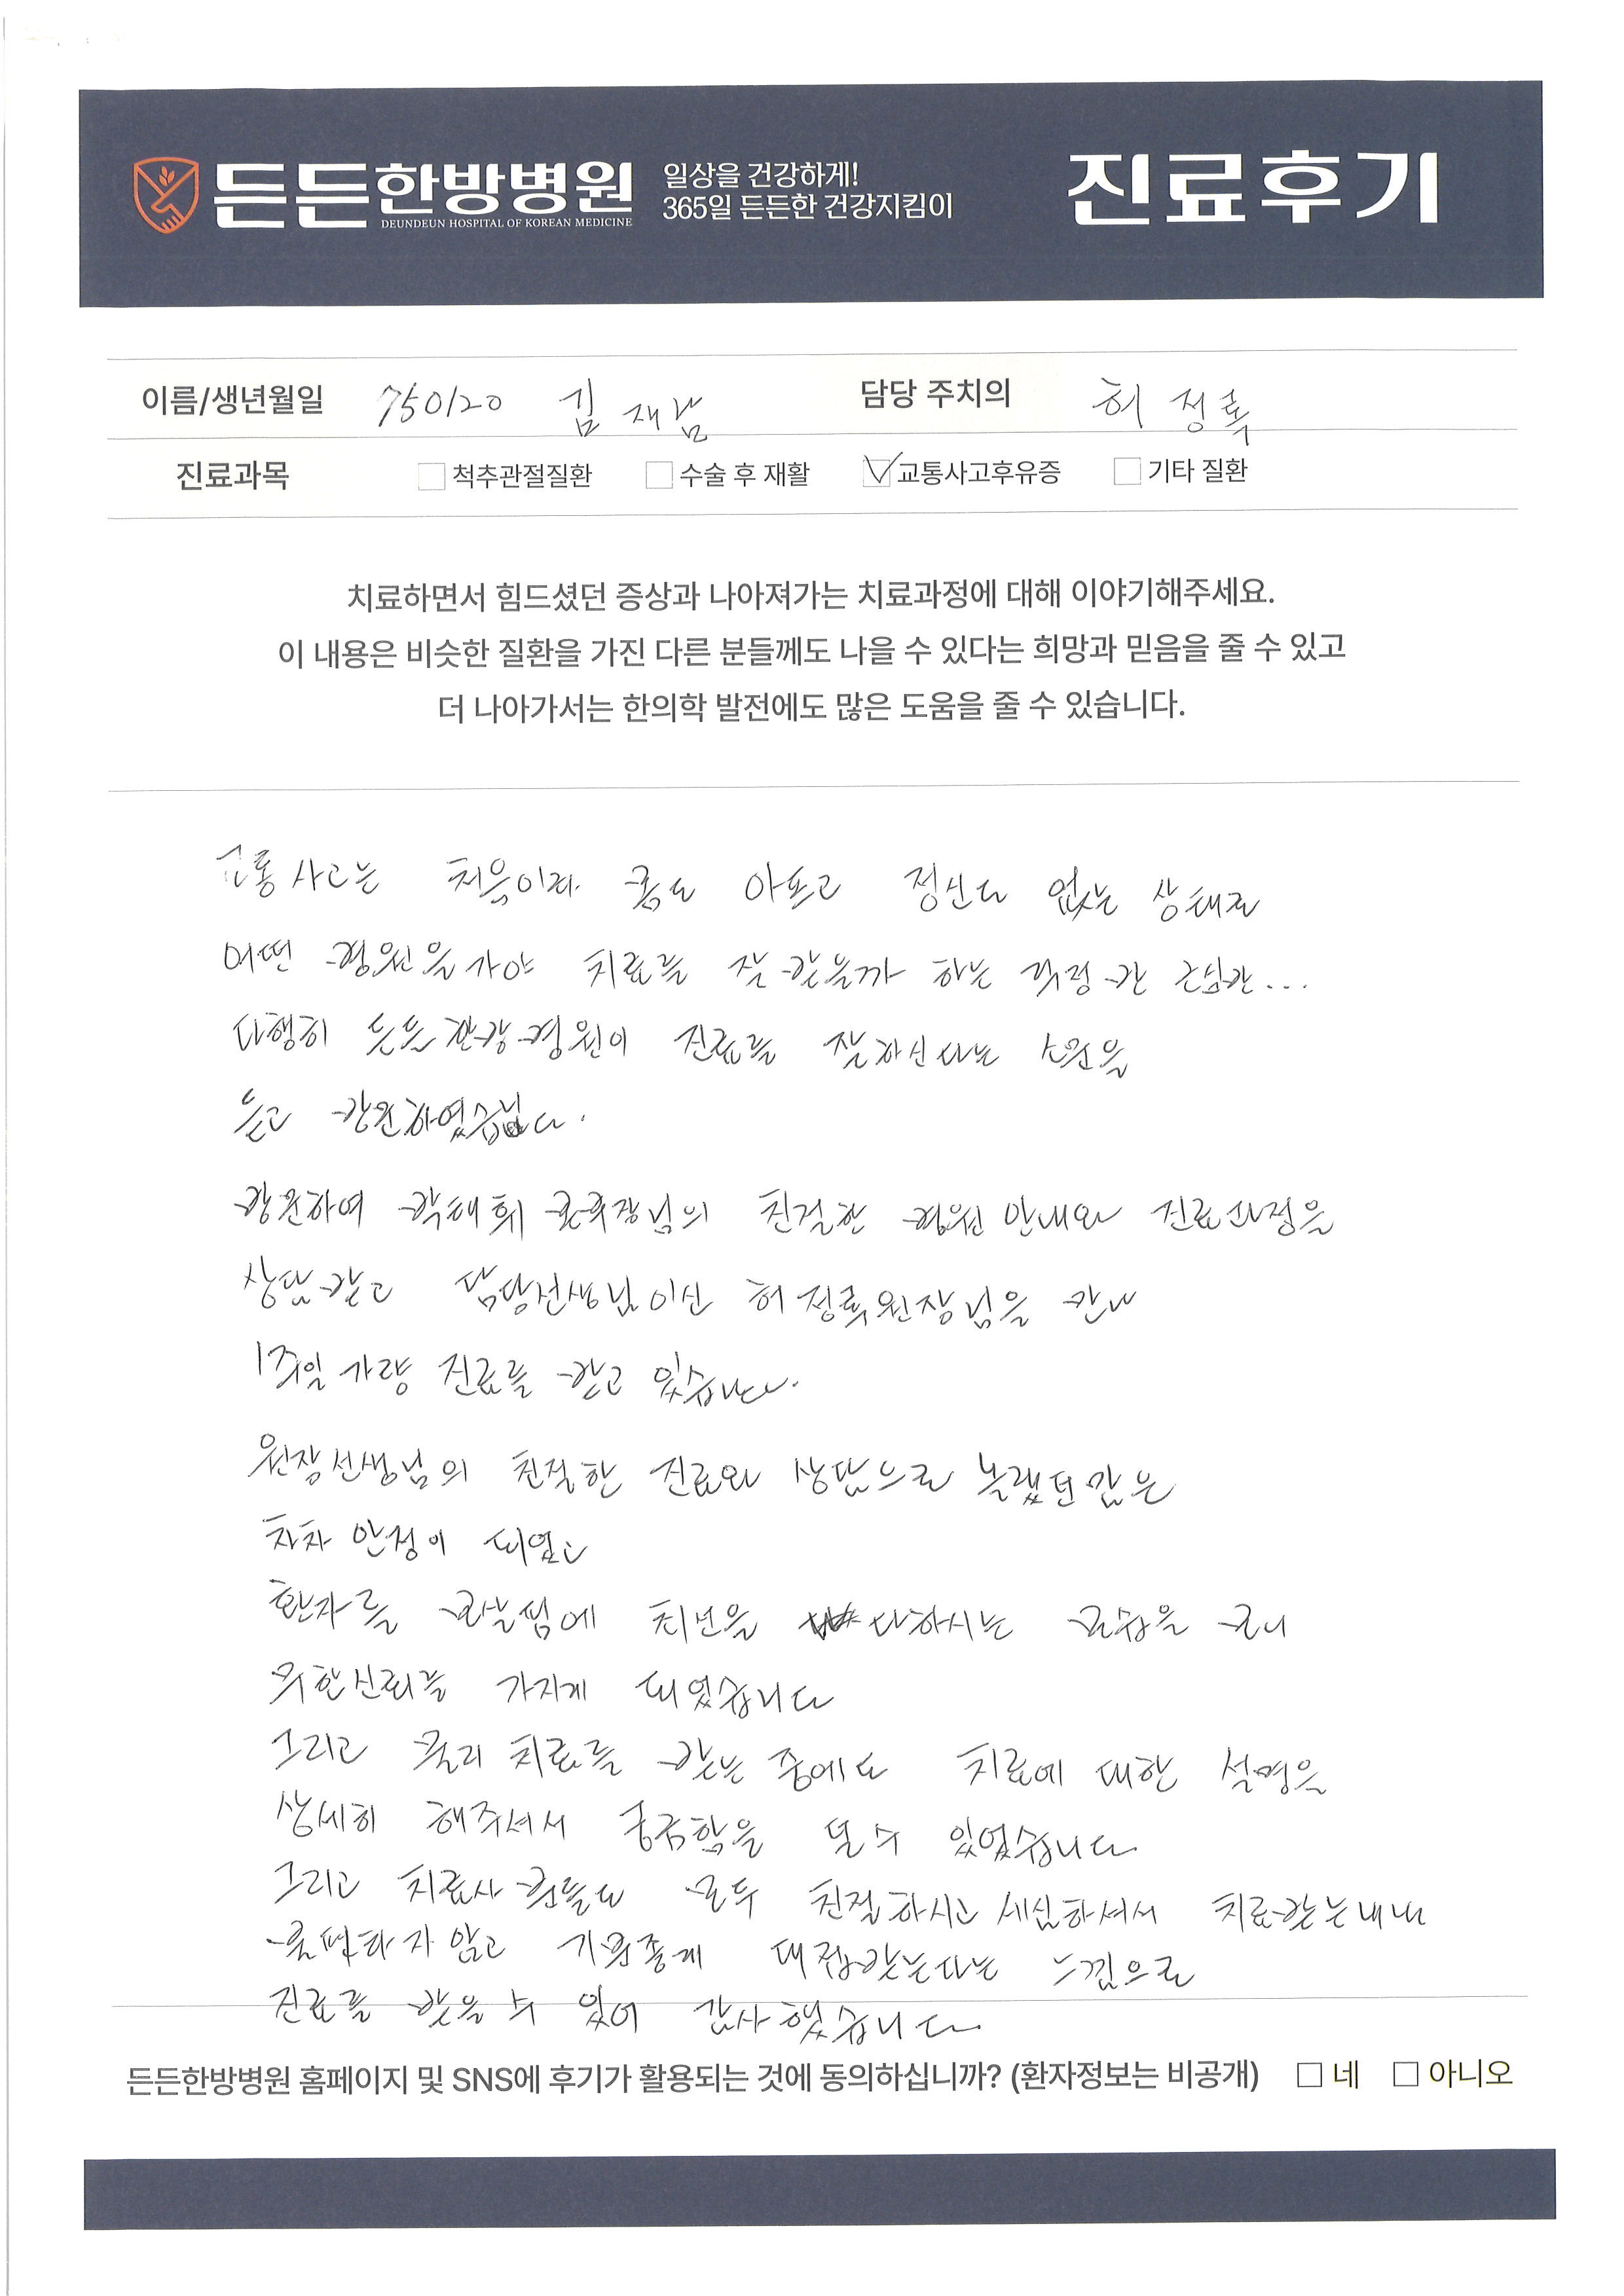 든든한방병원
DEUNDEUN HOSPITAL OF KOREAN MEDICINE
일상을 건강하게!
365일 든든한 건강지킴이
진료후기
이름/생년월일 750120 김 재남 담당 주치의 허 정록
진료과목 척추관절질환 수술 후 재활 교통사고후유증 기타 질환
치료하면서 힘드셨던 증상과 나아져가는 치료과정에 대해 이야기해주세요.
이 내용은 비슷한 질환을 가진 다른 분들께도 나을 수 있다는 희망과 믿음을 줄 수 있고
더 나아가서는 한의학 발전에도 많은 도움을 줄 수 있습니다.
교통사고는 처음이라 몸도 아프고 정신도 없는 상태로
어떤 병원을 가야 치료를 잘 받을까 하는 걱정 반 근심반...
다행히 든든한방병원이 진료를 잘하신다는 소문을
듣고 방문하였습니다.
방문하여 박태휘 본부장님의 친절한 병원 안내와 진료과정을
상담받고 담당선생님이신 허정록원장님을 만나
1주일 가량 진료를 받고 있습니다.
원장선생님의 친절한 진료와 상담으로 놀랬던맘은
차차 안정이 되었고
환자를 보살핌에 최선을 다하시는 모습을 보니
무한신뢰를 가지게 되었습니다
그리고 물리 치료를 받는 중에도 치료에 대한 설명을
상세히 해주셔서 궁금함을 덜 수 있었습니다
그리고 치료사 분들도 모두 친절하시고 세심하셔서 치료받는내내
불편하지 않고 기분좋게 대접받는다는 느낌으로
진료를 받을 수 있어 감사했습니다
든든한방병원 홈페이지 및 SNS에 후기가 활용되는 것에 동의하십니까? (환자정보는 비공개) 네 아니오